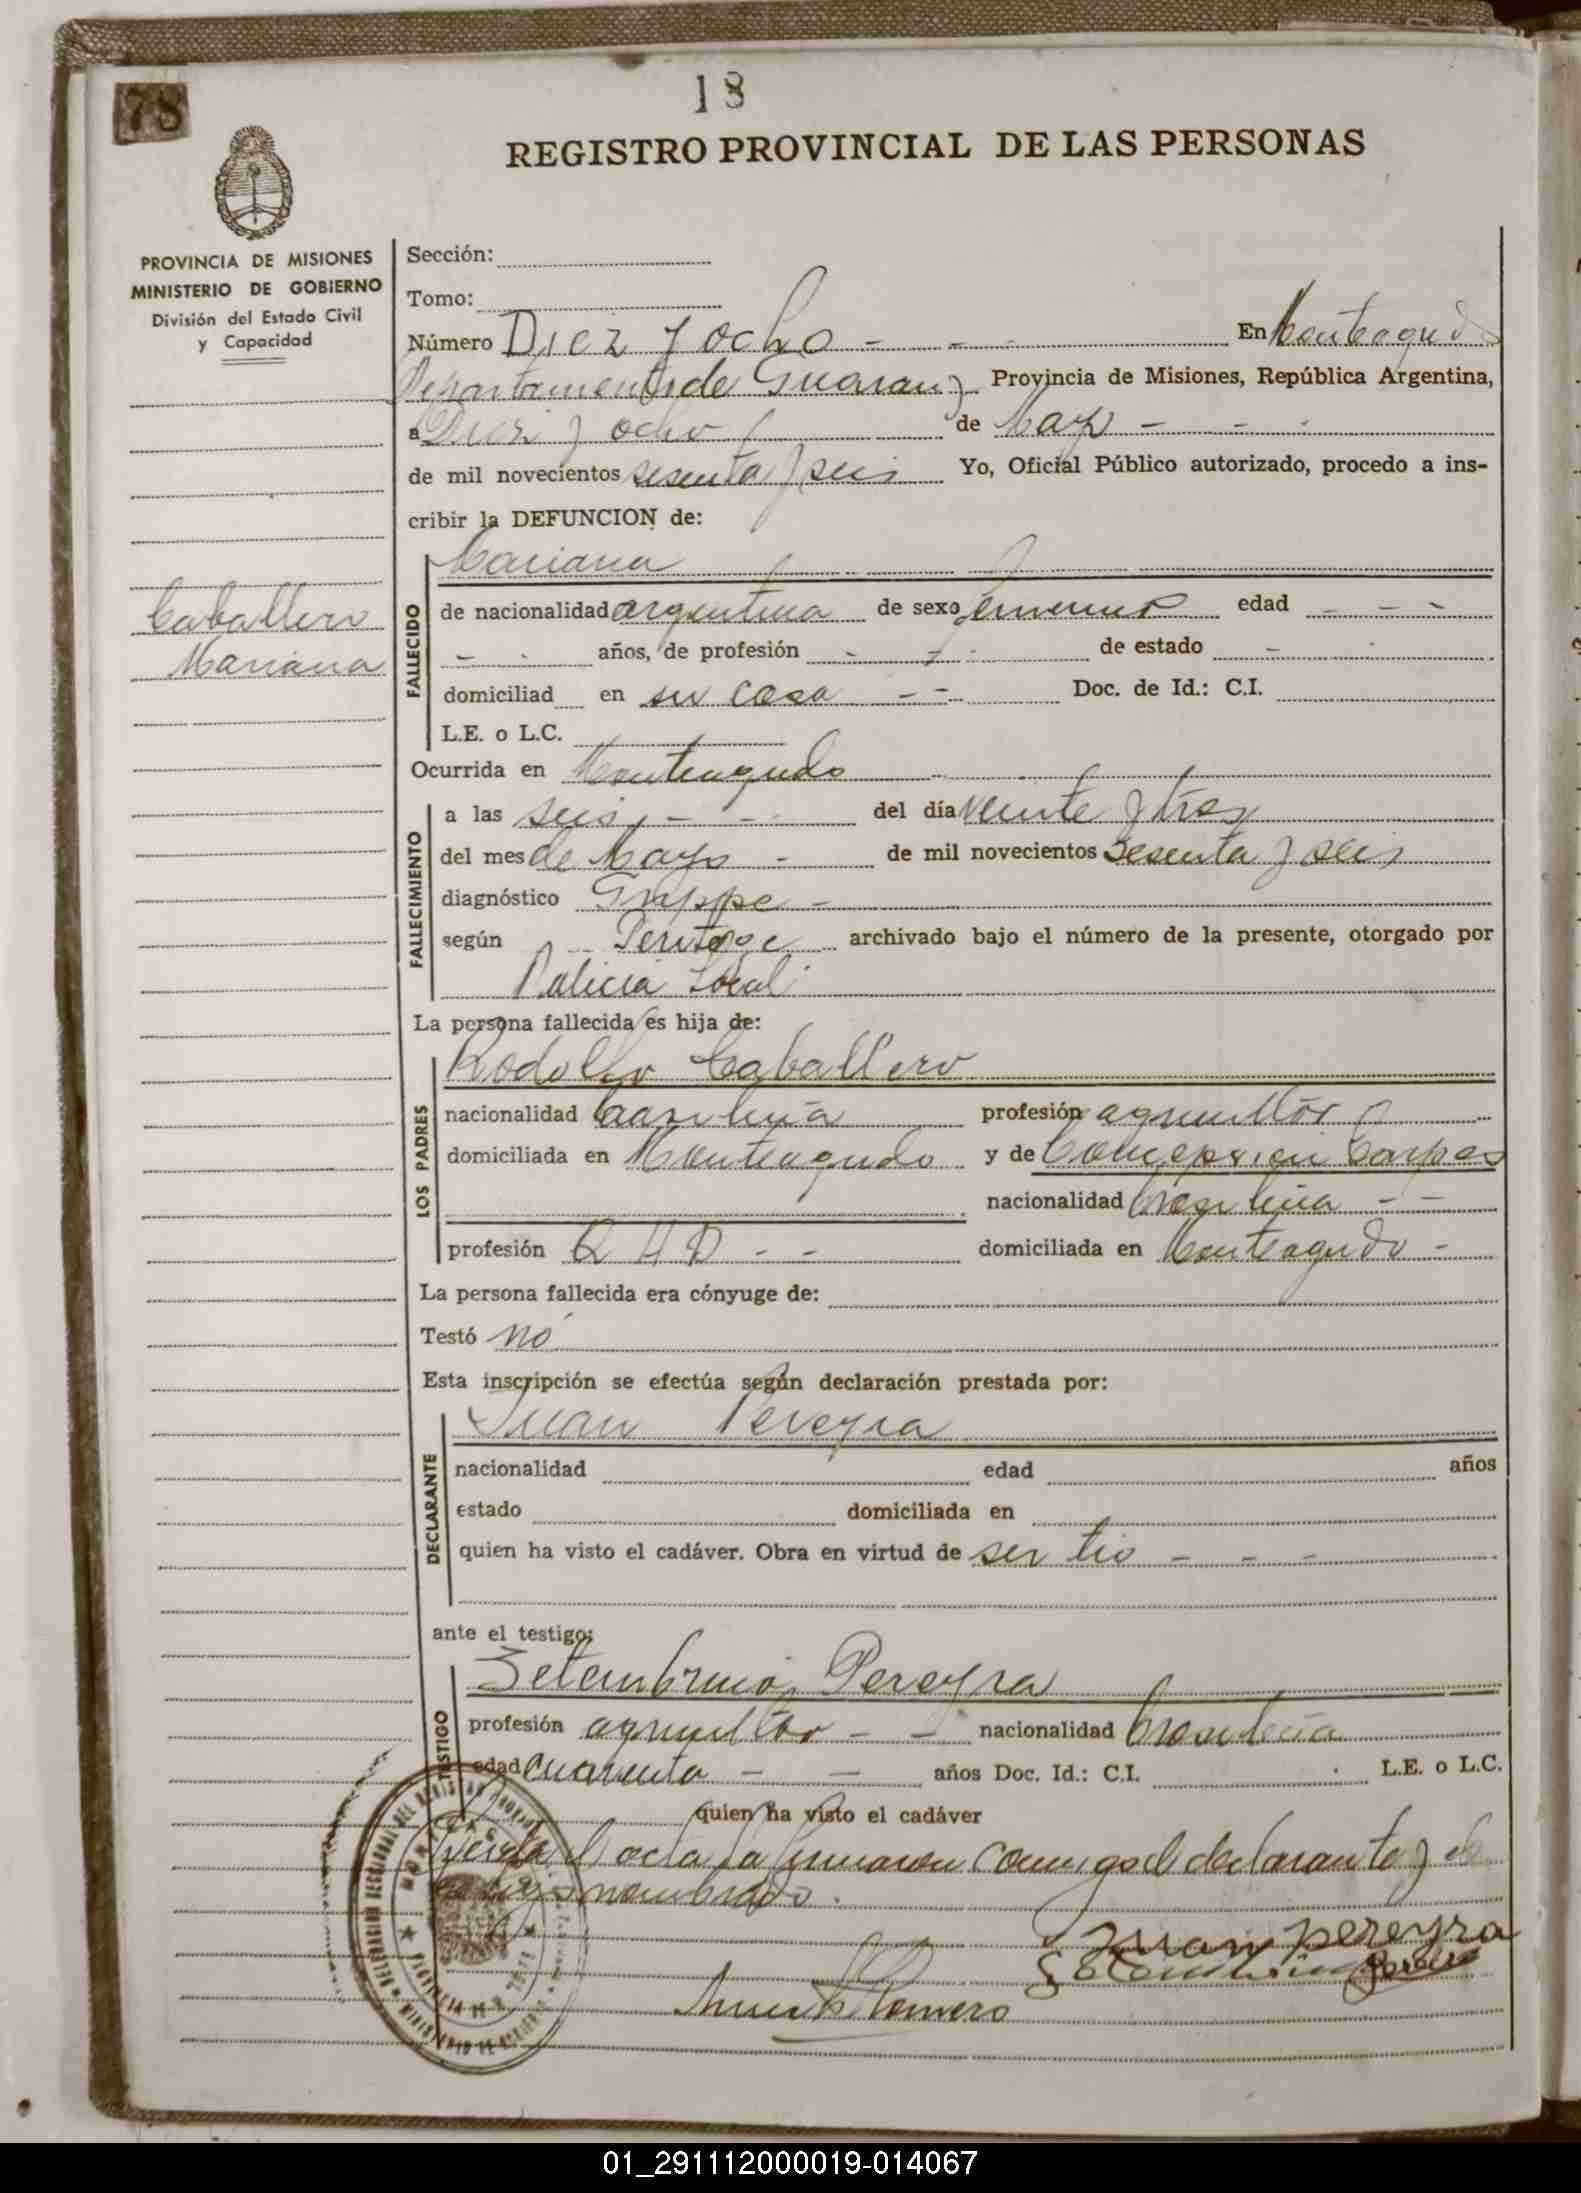 78
18
REGISTRO PROVINCIAL DE LAS PERSONAS
PROVINCIA DE MISIONES
MINISTERIO DE GOBIERNO
División del Estado Civil
y Capacidad
Caballero
Mariana
Sección:
Tomo:
Número Diez y ocho - - - En Monteagudo
Departamento de Guarany Provincia de Misiones, República Argentina,
a Diez y ocho de Mayo - - -
de mil novecientos sesenta y seis Yo, Oficial Público autorizado, procedo a ins-
cribir la DEFUNCION de:
FALLECIDO
Mariana
de nacionalidad argentina de sexo femenino edad - - -
- - años, de profesión - - - de estado -
domiciliad en su casa - - Doc. de Id.: C.I.
L.E. o L.C.
Ocurrida en Monteagudo
FALLECIMIENTO
a las seis, - - del día veinte y tres
del mes de Mayo - de mil novecientos Sesenta y seis
diagnóstico Grippe -
según Peritage archivado bajo el número de la presente, otorgado por
Policia Local
La persona fallecida es hija de:
LOS PADRES
Rodolfo Caballero
nacionalidad brasileña profesión agricultor
domiciliada en Monteagudo y de Concepcion Campos
nacionalidad brasileña - -
profesión Q H D - - domiciliada en Monteagudo -
La persona fallecida era cónyuge de:
Testó no
Esta inscripción se efectúa según declaración prestada por:
DECLARANTE
Juan Pereyra
nacionalidad edad años
estado domiciliada en
quien ha visto el cadáver. Obra en virtud de ser tio - - -
ante el testigo:
TESTIGO
Setembrino Pereyra
profesión agricultor - - nacionalidad brasileña
edad cuarenta - - años Doc. Id.: C.I. L.E. o L.C.
quien ha visto el cadáver
Leida el acta la firmaron conmigo el declarante y el
testigo nombrado.
Juan Pereyra
Setembrino Pereira
Romero
01_291112000019-014067